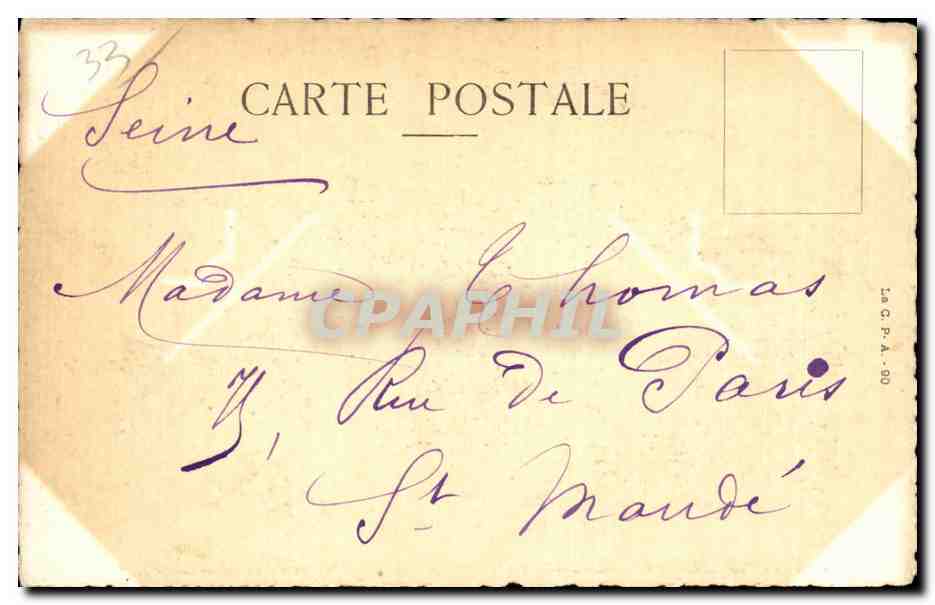 33
Seine
CARTE POSTALE
Madame Thomas
CPAPHIL
75, Rue de Paris
St Mandé
La C. P. A. - 90